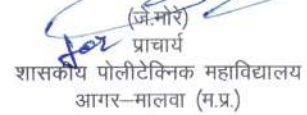 (जे.मोरे)
for प्राचार्य
शासकीय पोलीटेक्निक महाविद्यालय
आगर–मालवा (म.प्र.)